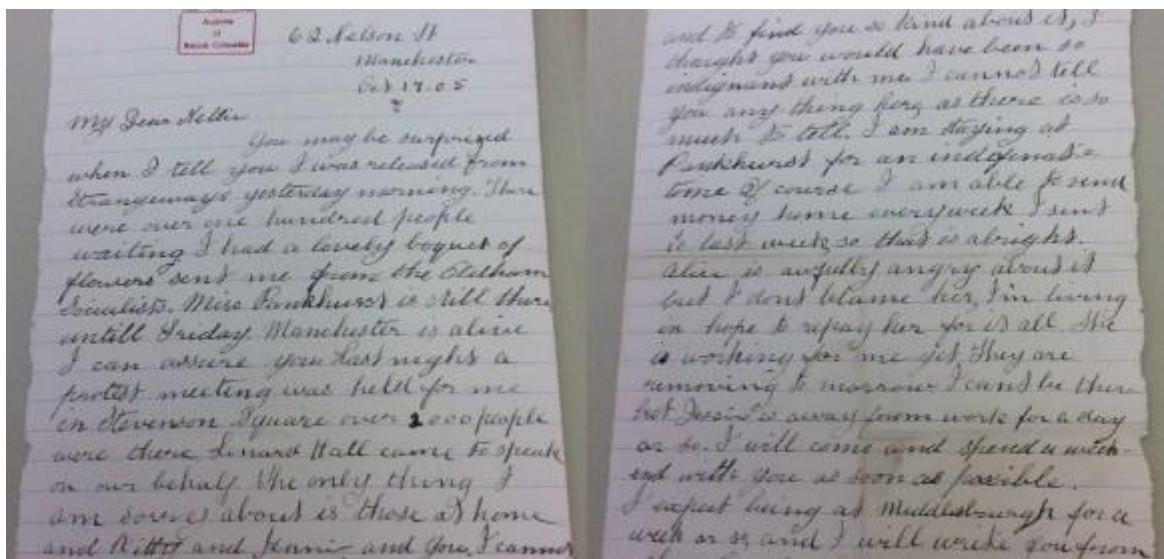 Archives
of
British Columbia
62 Nelson St
Manchester
Oct 17.05
My Dear Nellie
You may be surprized
when I tell you I was released from
Strangeways yesterday morning. There
were over one hundred people
waiting I had a lovely boquet of
flowers sent me from the Oldham
Socialists. Miss Pankhurst is still there
untill Friday. Manchester is alive
I can assure you Last night a
protest meeting was held for me
in Stevenson Square over 2000 people
were there Hall came to speak
on our behalf. The only thing I
am about is those at home
and Kitty and Jennie and you, I cannot
and to find you so kind about it, I
thought you would have been so
indignant with me. I cannot tell
you any thing here, as there is so
much to tell. I am staying at
Pankhurst for an
time Of course I am able to send
money home everyweek I sent
it last week, so that is alright.
Alice is awfully angry about it
but I dont blame her, I'm living
in hope to repay her for it all She
is working for me yet, They are
removing to morrow I cant be there
but Jessie is away from work for a day
or so. I will come and spend a week-
end with you as soon as possible.
I expect being at for a
week or so, and I will write you from